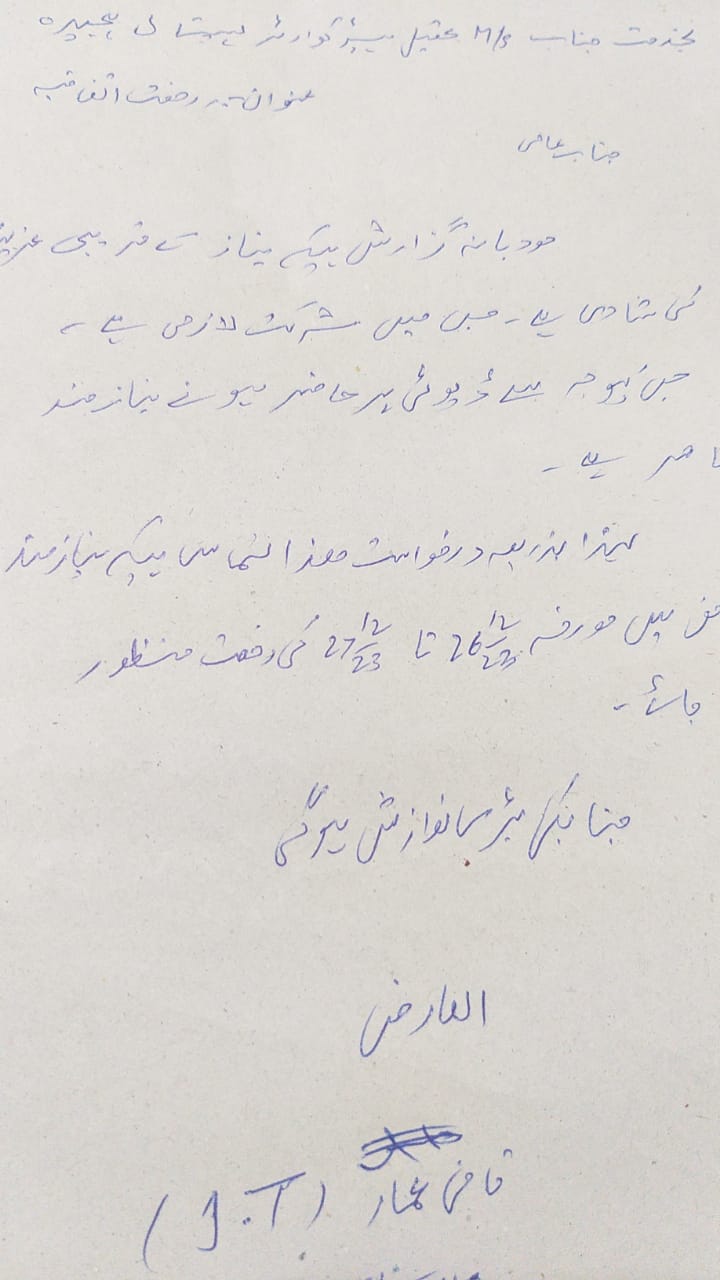 بخدمت جناب M/S عقیل ہیڈ کوارٹر ہسپتال ہجیرہ
عنوان:۔ رخصت اتفاقیہ
جناب عالی
مودبانہ گزارش ہیکہ نیاز کے قریبی عزیز
کی شادی ہے۔ جس میں شرکت لازمی ہے۔
جس کیوجہ سے ڈیوٹی پر حاضر ہونے نیازمند
قاصر ہے۔
لہذا بذریعہ درخواست ھذا التماس ہیکہ نیازمند
حق میں مورخہ 26 12/23 تا 27 12/23 کی رخصت منظور
جائے۔
جنابکی بڑی نوازش ہوگی
العارض
قاضی عمار (J.T)